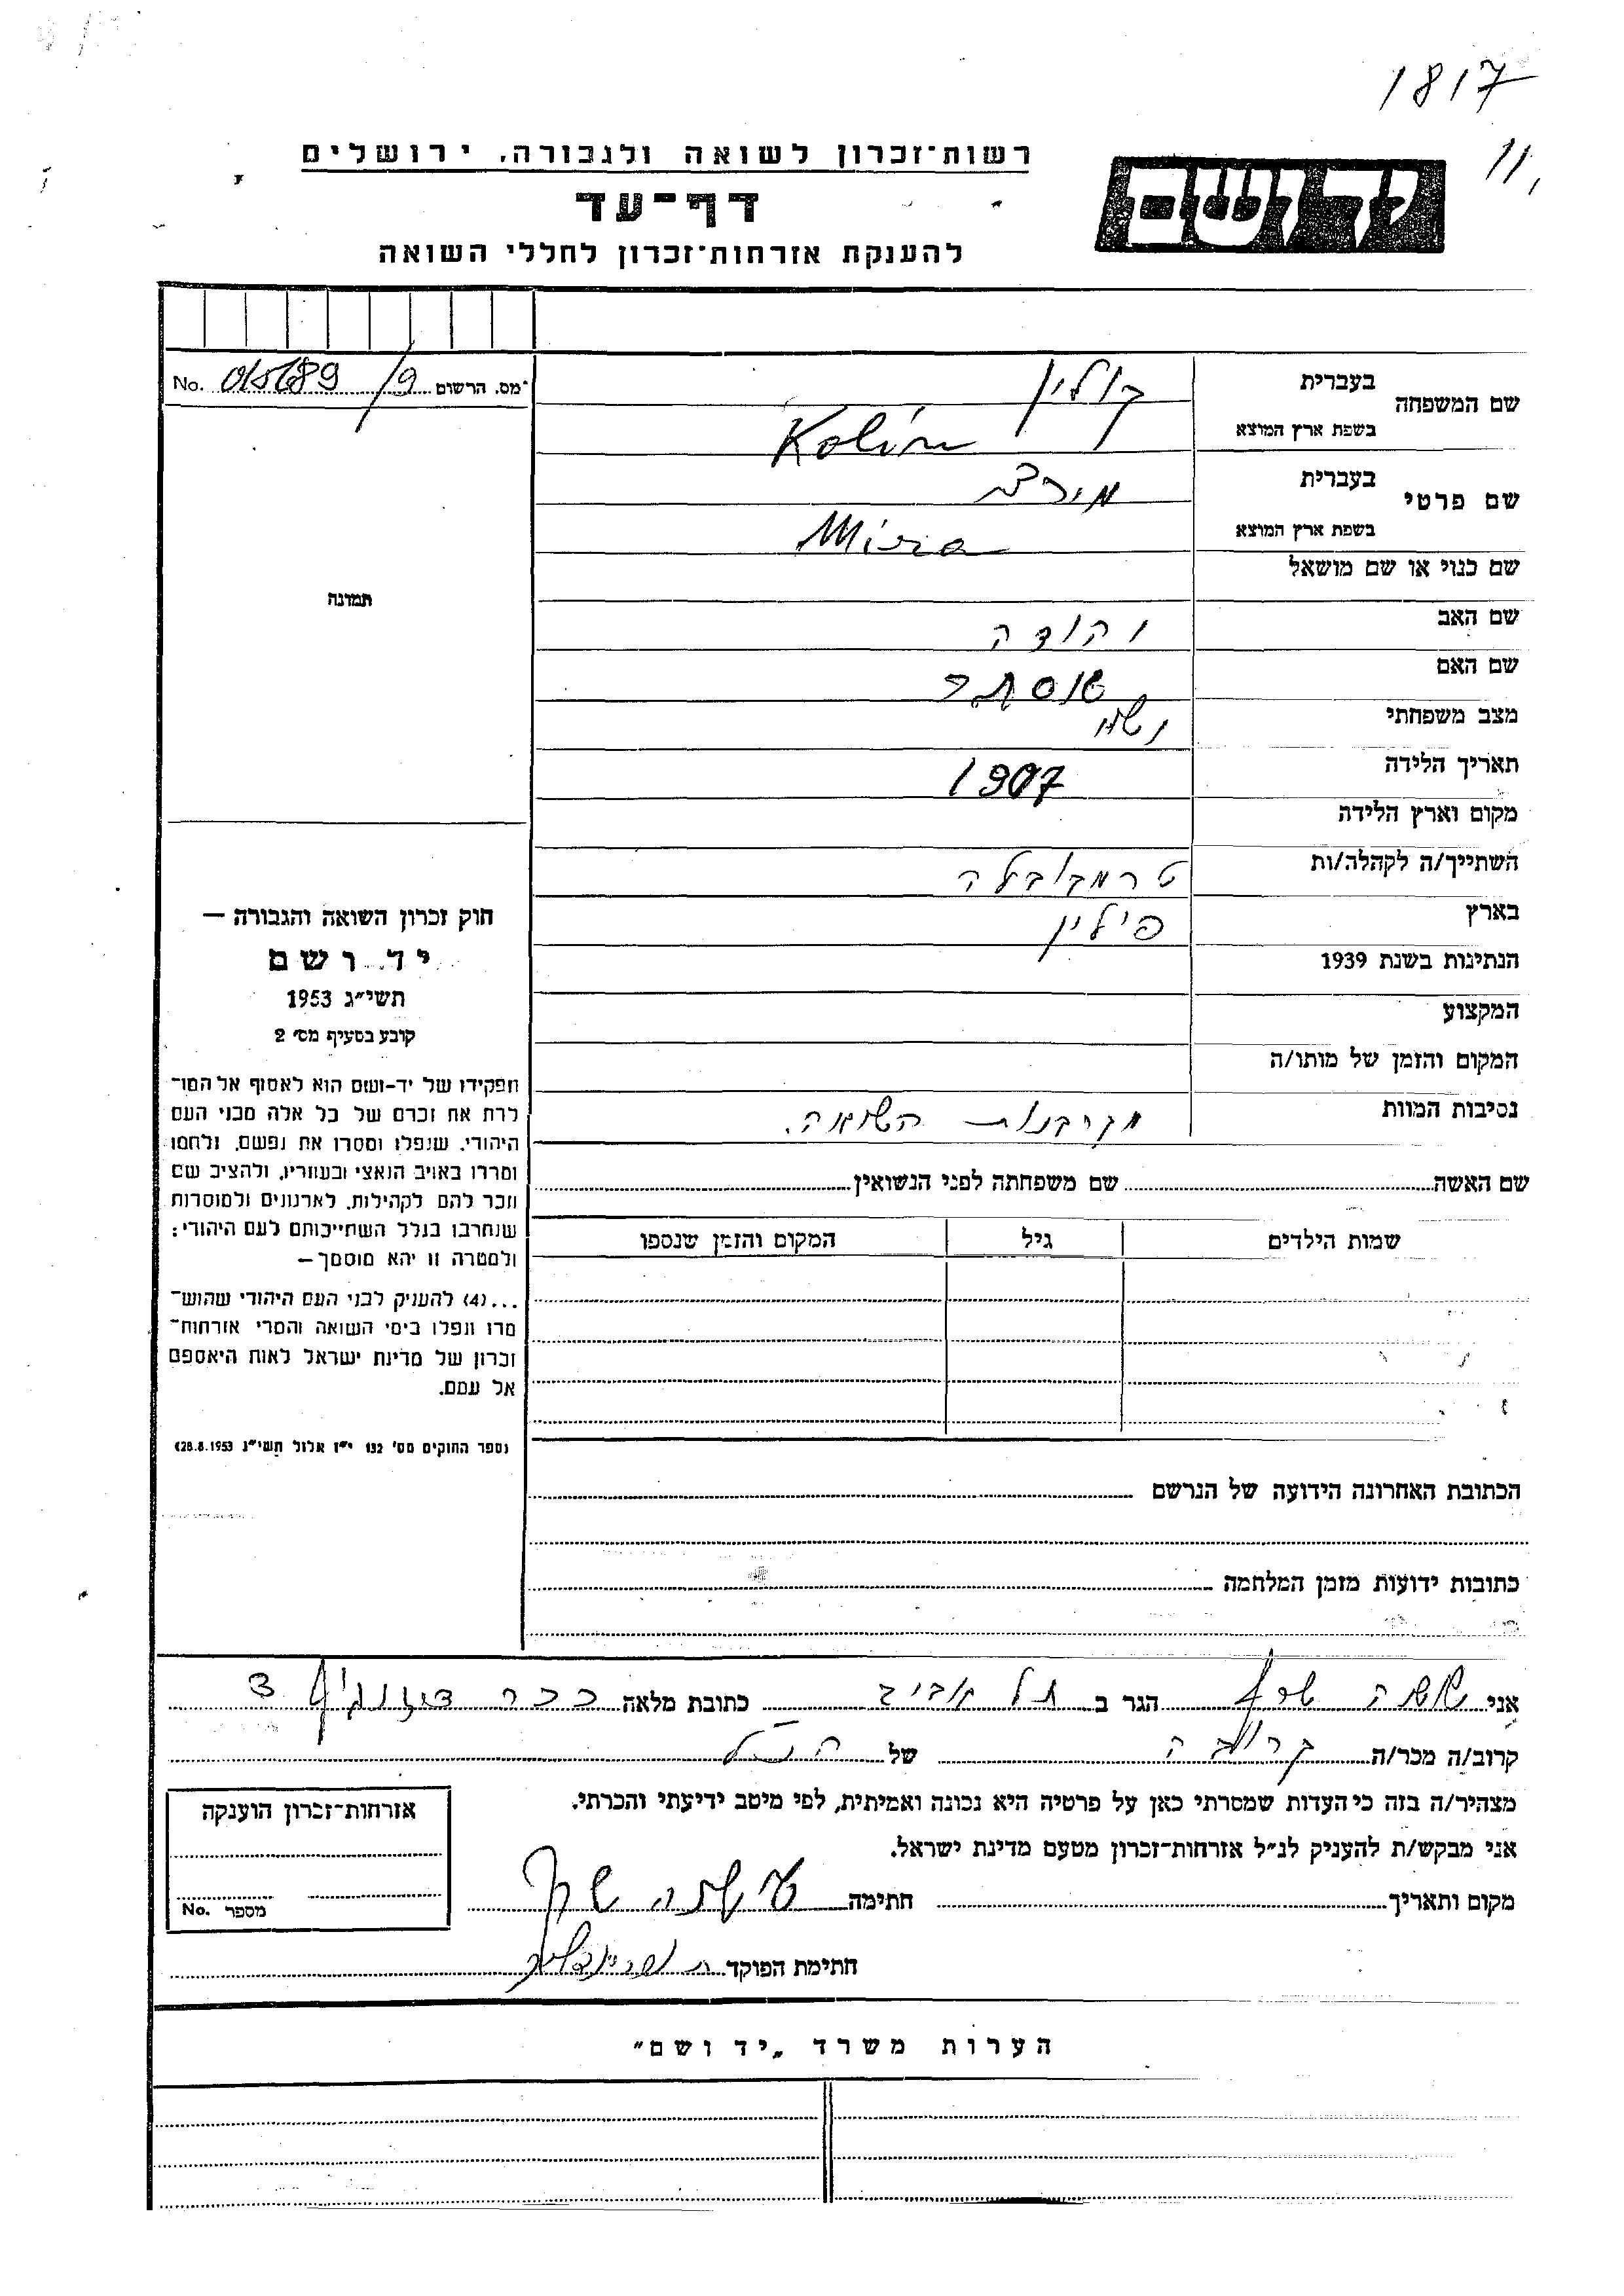 1817
11,
רשות־זכרון לשואה ולגבורה, ירושלים
יד ושם
דף־עד
להענקת אזרחות־זכרון לחללי השואה
מס. הרשום No.
שם המשפחה בעברית קולין
בשפת ארץ המוצא Kolin
שם פרטי בעברית מירה
בשפת ארץ המוצא Mira
שם כנוי או שם מושאל
שם האב יהודה
שם האם אסתר
מצב משפחתי נשוי
תאריך הלידה 1907
מקום וארץ הלידה
השתייך/ה לקהלה/ות טרמבובלה
בארץ פולין
הנתינות בשנת 1939
המקצוע
המקום והזמן של מותו/ה
נסיבות המוות מקרבנות השואה.
שם האשה שם משפחתה לפני הנשואין
שמות הילדים גיל המקום והזמן שנספו
תמונה
חוק זכרון השואה והגבורה —
יד ושם
תשי״ג 1953
קובע בסעיף מס׳ 2
תפקידו של יד-ושם הוא לאסוף אל המו־
לדת את זכרם של כל אלה מבני העם
היהודי, שנפלו ומסרו את נפשם, נלחמו
ומרדו באויב הנאצי ובעוזריו, ולהציב שם
וזכר להם לקהילות, לארגונים ולמוסדות
שנחרבו בגלל השתייכותם לעם היהודי;
ולמטרה זו יהא מוסמך —
...(4) להעניק לבני העם היהודי שהוש־
מדו ונפלו בימי השואה והמרי אזרחות־
זכרון של מדינת ישראל לאות היאספם
אל עמם.
(ספר החוקים מס׳ 132 י״ז אלול תשי״ג 28.8.1953)
הכתובת האחרונה הידועה של הנרשם
כתובות ידועות מזמן המלחמה
אני הגר ב תל אביב כתובת מלאה ככר דיזנגוף 3
קרוב/ה מכר/ה קרובה של הנ״ל
מצהיר/ה בזה כי העדות שמסרתי כאן על פרטיה היא נכונה ואמיתית, לפי מיטב ידיעתי והכרתי.
אני מבקש/ת להעניק לנ״ל אזרחות־זכרון מטעם מדינת ישראל.
מקום ותאריך חתימה
חתימת הפוקד
אזרחות־זכרון הוענקה
מספר No.
הערות משרד „יד ושם״